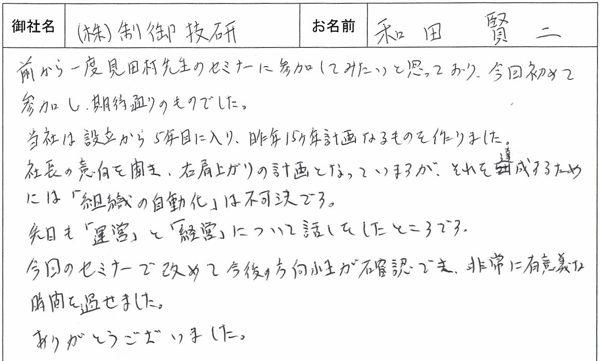 御社名 (株)制御技研 お名前 和田 賢二
前から一度見田村先生のセミナーに参加してみたいと思っており、今回初めて
参加し、期待通りのものでした。
当社は設立から5年目に入り、昨年15ヶ年計画なるものを作りました。
社長の意向を聞き、右肩上がりの計画となっていますが、それを達成するため
には「組織の自動化」は不可決です。
先日も「運営」と「経営」について話しをしたところです。
今回のセミナーで改めて今後の方向性が確認でき、非常に有意義な
時間を過せました。
ありがとうございました。